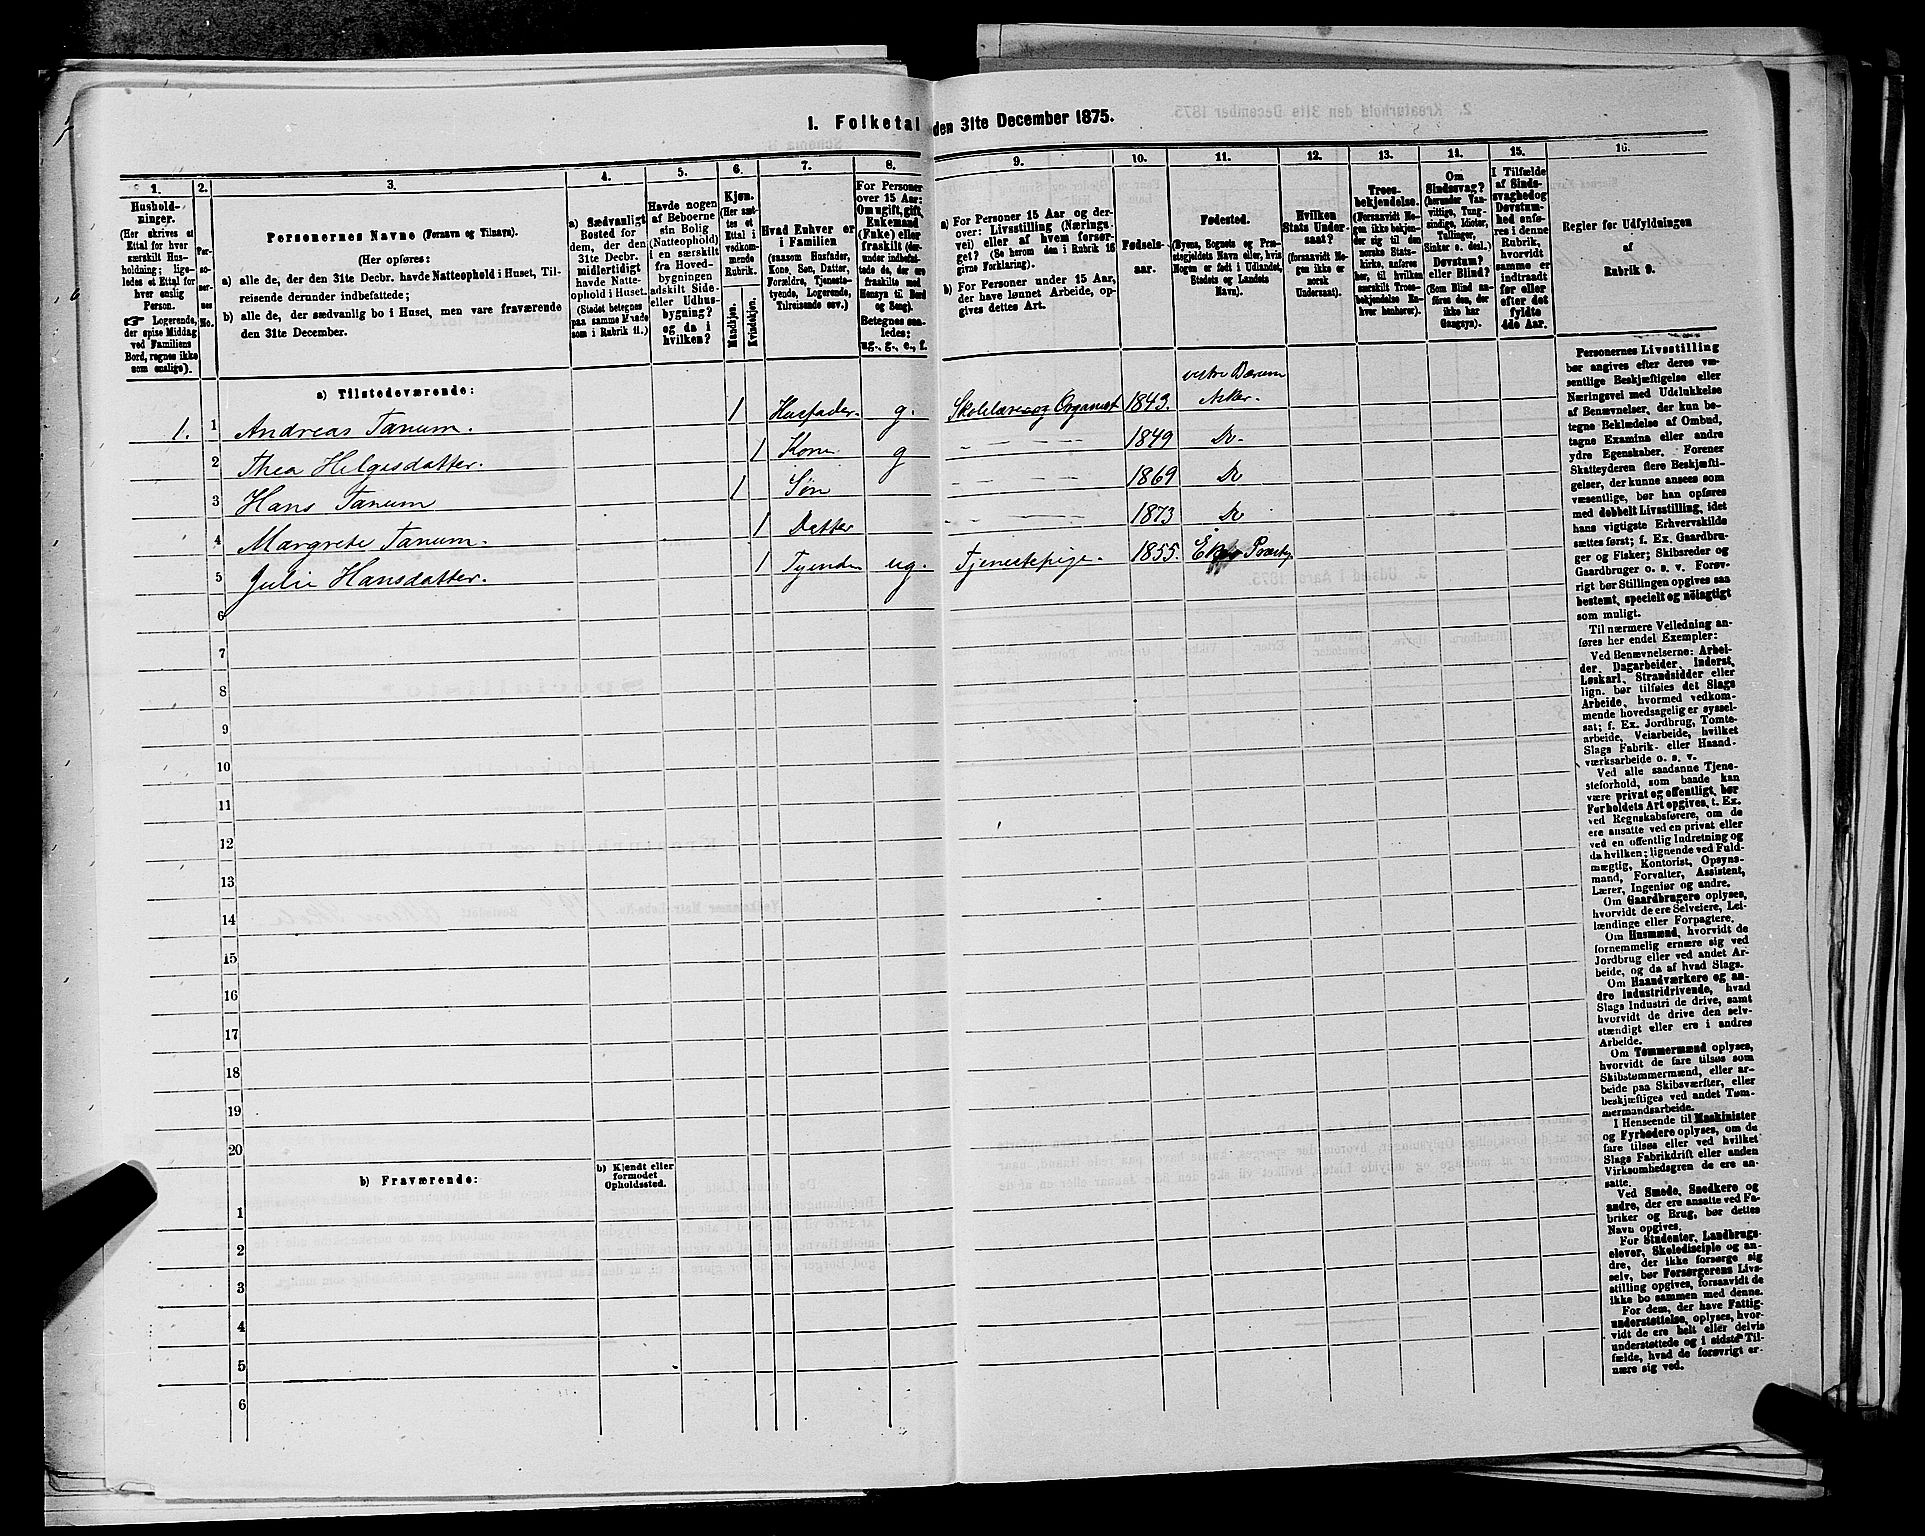 1. Folketal den 31te December 1875.
1. 2. 3. 4. 5. 6. 7. 8. 9. 10. 11. 12. 13. 14. 15. 16.
Hushold-
ninger.
(Her skrives et
Ettal for hver
særskilt Hus-
holdning; lige-
ledes et Ettal for
hver enslig
Person.
☞ Logerende,
der spise Middag
ved Familiens
Bord, regnes ikke
som enslige).
Per-
so-
ner-
nes
No.
Personernes Navne (Fornavn og Tilnavn).
(Her opføres:
a) alle de, der den 31te Decbr. havde Natteophold i Huset, Til-
reisende derunder indbefattede;
b) alle de, der sædvanlig bo i Huset, men vare fraværende
den 31te December.
a) Sædvanligt
Bosted for
dem, der den
31te Decbr.
midlertidigt
havde Natte-
ophold i Huset.
(Stedet betegnes
paa samme Maade
som i Rubrik 11.)
Havde nogen
af Beboerne
sin Bolig
(Natteophold)
i en særskilt
fra Hoved-
bygningen
adskilt Side-
eller Udhus-
bygning?
og da i
hvilken?
Kjøn.
(Her sæt-
tes et
Ettal i
vedkom-
mende
Rubrik.
Mandkjøn.
Kvindekjøn.
Hvad Enhver er
i Familien
(saasom Husfader,
Kone, Søn, Datter,
Forældre, Tjeneste-
tyende, Logerende,
Tilreisende osv.)
For Personer
over 15 Aar:
Om ugift, gift,
Enkemand
(Enke) eller
fraskilt (der-
under indbefat-
tede de, der ere
fraskilte med
Hensyn til Bord
og Seng).
Betegnes saa-
ledes:
ug., g., e., f.
a) For Personer 15 Aar og der-
over: Livsstilling (Nærings-
vei) eller af hvem forsør-
get? (Se herom den i Rubrik 16
givne Forklaring).
b) For Personer under 15 Aar,
der have lønnet Arbeide, op-
gives dettes Art.
Fødsels-
aar.
Fødested.
(Byens, Sognets og Præ-
stegjeldets Navn eller, hvis
Nogen er født i Udlandet,
Stedets og Landets
Navn).
Hvilken
Stats Under-
saat?
(forsaavidt No-
gen ikke er
norsk
Undersaat).
Troes-
bekjendelse.
(Forsaavidt No-
gen ikke bekjen-
der sig til den
norske Stats-
kirke, anføres
her, til hvilken
særskilt Troes-
bekjendelse En-
hver henhører).
Om
Sindssvag?
(herunder Van-
vittige, Tung-
sindige, Idioter,
Tullinger,
Sinker o. desl.)
Døvstum?
eller Blind?
(Som Blind an-
føres den, der
ikke har
Gangsyn).
I Tilfælde
af Sinds-
svaghed og
Døvstum-
hed anfø-
res i denne
Rubrik,
hvorvidt
samme er
indtraadt
før eller
efter det
fyldte
4de Aar.
Regler for Udfyldningen
af
Rubrik 9.
a) Tilstedeværende:
vestre Bærum
1. 1 Andreas Tanum. 1 Husfader. g. Skolelærer og Organist 1843. Asker.
2 Thea Helgesdatter. 1 Kone g 1849 Do
3 Hans Tanum 1 Søn 1869 Do
4 Margrete Tanum. 1 Datter 1873 Do
5 Julie Hansdatter. 1 Tyende ug. Tjenestepige. 1855.
6
7
8
9
10
11
12
13
14
15
16
17
18
19
20
b) Fraværende:
b) Kjendt eller
formodet
Opholdssted.
1
2
3
4
5
6
Personernes Livsstilling
bør angives efter deres væ-
sentlige Beskjæftigelse eller
Næringsvei med Udelukkelse
af Benævnelser, der kun be-
tegne Beklædelse af Ombud,
tagne Examina eller andre
ydre Egenskaber. Forener
Skatteyderen flere Beskjæfti-
gelser, der kunne ansees som
væsentlige, bør han opføres
med dobbelt Livsstilling, idet
hans vigtigste Erhvervskilde
sættes først; f. Ex. Gaardbru-
ger og Fisker; Skibsreder og
Gaardbruger o. s. v. Forøv-
rigt bør Stillingen opgives saa
bestemt, specielt og nøiagtigt
som muligt.
Til nærmere Veiledning an-
føres her endel Exempler:
Ved Benævnelserne: Arbei-
der, Dagarbeider, Inderst,
Løskarl, Strandsidder eller
lign. bør tilføies det Slags
Arbeide, hvormed vedkom-
mende hovedsagelig er syssel-
sat; f. Ex. Jordbrug, Tomte-
arbeide, Veiarbeide, hvilket
Slags Fabrik- eller Haand-
værksarbeide o. s. v.
Ved alle saadanne Tjene-
steforhold, som baade kan
være privat og offentligt, bør
Forholdets Art opgives, t. Ex.
ved Regnskabsførere, om de
ere ansatte ved en privat eller
ved en offentlig Indretning og
da hvilken; lignende ved Fuld-
mægtig, Kontorist, Opsyns-
mand, Forvalter, Assistent,
Lærer, Ingeniør og andre.
Om Gaardbrugere oplyses,
hvorvidt de ere Selveiere, Lei-
lændinge eller Forpagtere.
Om Husmænd, hvorvidt de
fornemmelig ernære sig ved
Jordbrug eller ved andet Ar-
beide, og da af hvad Slags.
Om Haandværkere og an-
dre Industridrivende, hvad
Slags Industri de drive, samt
hvorvidt de drive den selv-
stændigt eller ere i andres
Arbeide.
Om Tømmermænd oplyses,
hvorvidt de fare tilsøs som
Skibstømmermænd, eller ar-
beide paa Skibsværfter, eller
beskjæftiges ved andet Tøm-
mermandsarbeide.
I Henseende til Maskinister
og Fyrbødere oplyses, om de
fare tilsøs eller ved hvilket
Slags Fabrikdrift eller anden
Virksomhedsgren de ere an-
satte.
Ved Smede, Snedkere og
andre, der ere ansatte ved Fa-
briker og Brug, bør dettes
Navn opgives.
For Studenter, Landbrugs-
elever, Skoledisciple og an-
dre, der ikke forsørge sig
selv, bør Forsørgerens Livs-
stilling opgives, forsaavidt de
ikke bo sammen med denne.
For dem, der have Fattig-
understøttelse, oplyses, hvor-
vidt de ere helt eller delvis
understøttede og i sidste Til-
fælde, hvad de forøvrigt er-
nære sig ved.